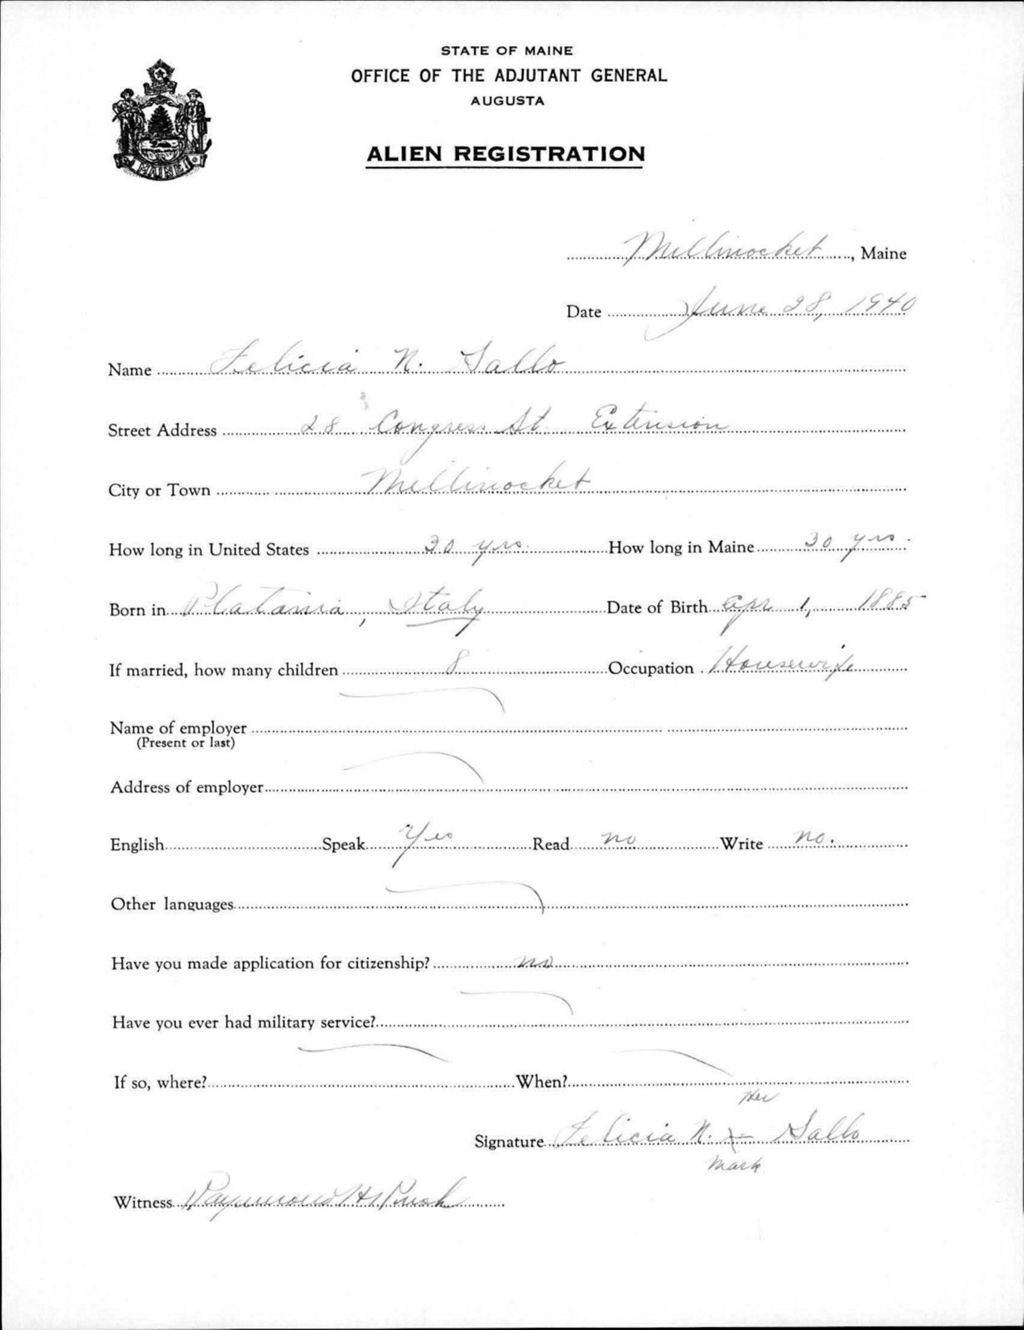 STATE OF MAINE
OFFICE OF THE ADJUTANT GENERAL
AUGUSTA
ALIEN REGISTRATION
MAINE
Millinocket, Maine
Date June 28, 1940
Name Felicia N. Gallo
Street Address 28 Congress St. Extension
City or Town Millinocket
How long in United States 30 yrs. How long in Maine 30 yrs.
Born in Platania, Italy Date of Birth Apr 1, 1885
If married, how many children 8 Occupation Housewife
Name of employer
(Present or last)
Address of employer
English Speak Yes Read no Write no.
Other languages
Have you made application for citizenship? no
Have you ever had military service?
If so, where? When?
Her
Signature Felicia N. X Gallo
mark
Witness Raymond H.